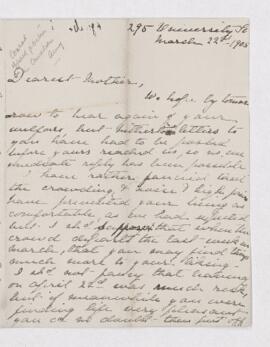 295 University St
March 22nd 1905
Dearest Mother,
We hope by tomor
row to hear again of your
welfare, but hitherto letters to
you have had to be posted
before yours reached us so no im
mediate reply has been possible.
I have rather fancied that
the crowding & noise & high prices
have prevented your being as
comfortable as we had expected
but I shd suppose that when the
crowd departs the last week in
March, that you may find things
much more to your liking.
I shd not fancy that leaving
on April 22nd was much risk,
but if meanwhile you were
finding life very pleasant
you cd no doubt then put